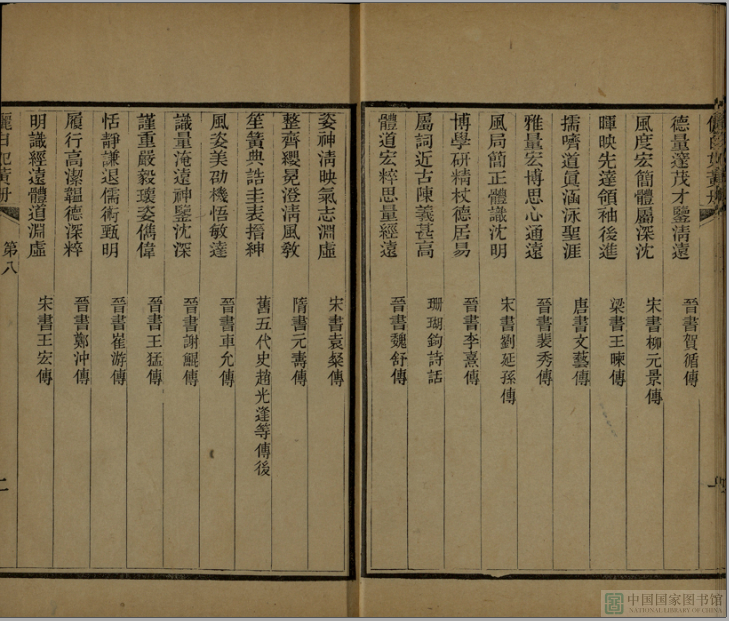 德量邃茂才鑒清遠 晉書賀循傳
風度宏簡體屬深沈 宋書柳元景傳
暉映先達領袖後進 梁書王暕傳
擩嚌道眞涵泳聖涯 唐書文藝傳
雅量宏博思心通遠 晉書裴秀傳
風局簡正體識沈明 宋書劉延孫傳
博學研精杖德居易 晉書李熹傳
屬詞近古陳義甚高 珊瑚鉤詩話
體道宏粹思量經遠 晉書魏舒傳
姿神淸映氣志淵虛 宋書袁粲傳
整齊纓冕澄淸風敎 隋書元壽傳
笙簧典誥圭表搢紳 舊五代史趙光逢等傳後
風姿美劭機悟敏達 晉書車允傳
識量淹遠神鑒沈深 晉書謝鯤傳
謹重嚴毅瓌姿儁偉 晉書王猛傳
恬靜謙退儒術甄明 晉書崔游傳
履行高潔韞德深粹 晉書鄭沖傳
明識經遠體道淵虛 宋書王宏傳
第八
二
中国国家图书馆
NATIONAL LIBRARY OF CHINA